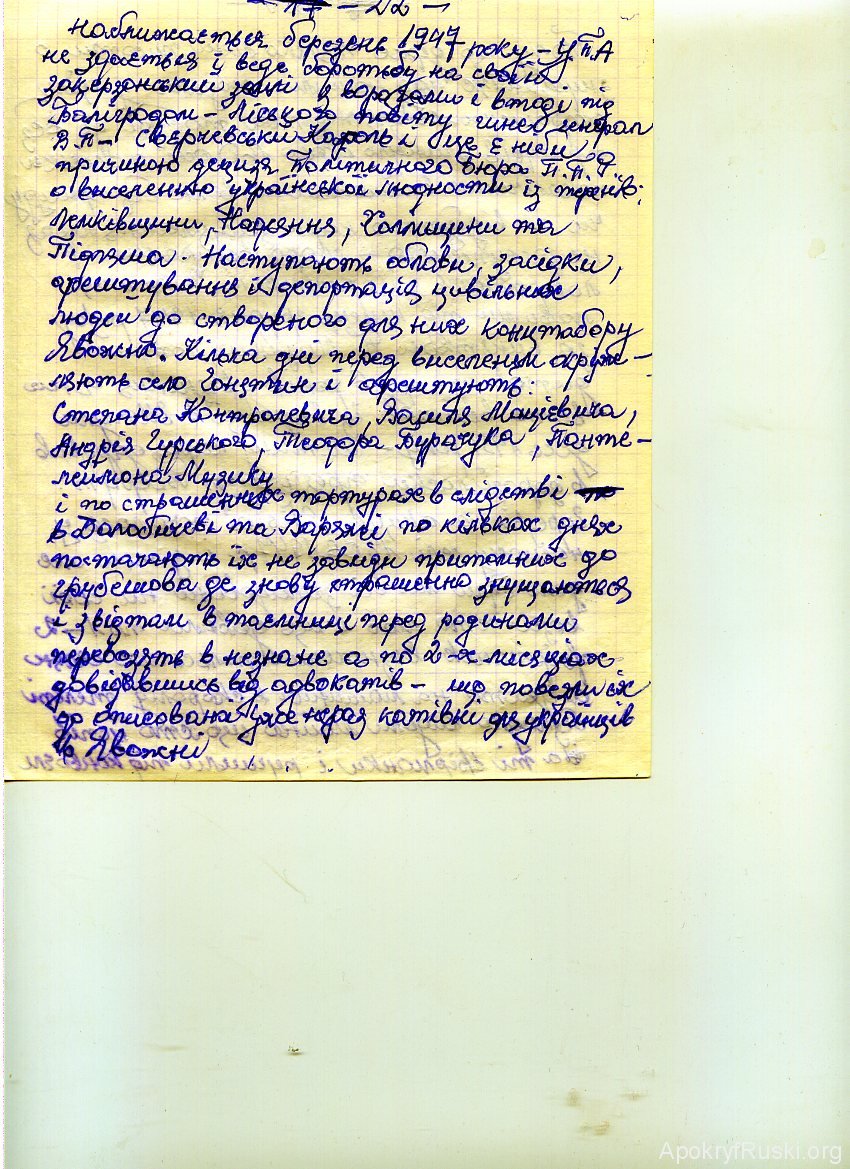 17 - 22 -
наближається березень 1947 року - УПА
не здається й веде боротьбу на своїй
закерзонській землі з ворогами і втоді під
Балігродом - Ліського повіту гине генерал
В.П- Свєрчевській Кароль і це є ніби
причиною децизя Політичного Бюра П.П.Р
о виселенню української людности із теренів:
Лемківщини, Надсяння, Холмщини та
Підляша. Наступають облави, засідки,
арештування і депортація цивільних
людей до створеного для них концтабору
Явожно. Кілька дні перед виселенцм окружа-
ляють село Гонятин і арештують:
Степана Контролевича, Василя Маційвича,
Андрія Гурського, Теофора Бурачука, Панте-
леймона Музику
і по страшенних тортурах в слідстві
в Долобичеві та Варяжі по кількох днях
постачають їх не завжди притомних до
Грубешова де знову страшенно знущаються
і звідтам в таємниці перед родинами
перевозять в незнане а по 2-х місяціах
довідавшись від адвокатів - що повезли їх
до описованой уже нераз катівні для українців
в Явожні
ApokryfRuski.org